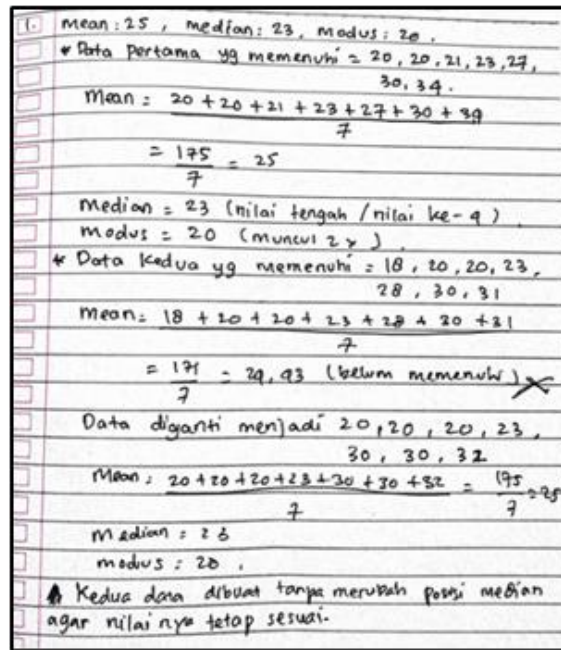 1. mean : 25 , median : 23, modus : 20 .
* Data pertama yg memenuhi = 20, 20, 21, 23, 27,
30, 34.
Mean = 20 + 20 + 21 + 23 + 27 + 30 + 34
7
= 175
7
= 25
median = 23 (nilai tengah / nilai ke-4)
modus = 20 (muncul 2x).
* Data kedua yg memenuhi = 18, 20, 20, 23,
28, 30, 31
Mean = 18 + 20 + 20 + 23 + 28 + 30 + 31
7
= 171
7
= 24,43 (belum memenuhi) X
Data diganti menjadi 20, 20, 20, 23,
30, 30, 32
Mean = 20 + 20 + 20 + 23 + 30 + 30 + 32
7
= 175
7
= 25
median = 23
modus = 20 .
Kedua data dibuat tanpa merubah posisi median
agar nilai nya tetap sesuai.